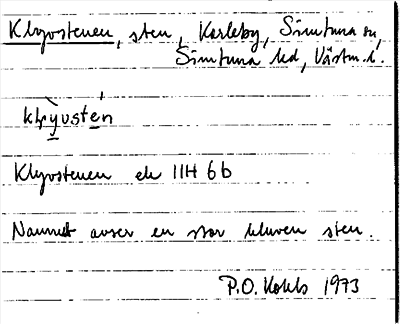 Klyvstenen, sten, Karleby, Simtuna sn,
Simtuna hd, Västm.l.
klyvstén
Klyvstenen ek 11H 6b
Namnet avser en stor kluven sten.
P.O. 1973